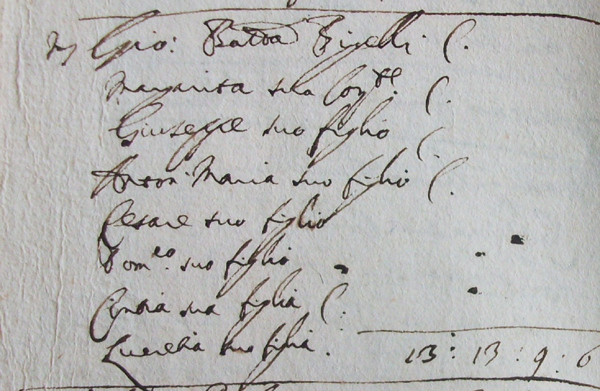 Gio: Batta Figelli C.
Margarita sua Con^te. C.
Giuseppe suo figlio C
Anton Maria suo figlio C.
Cesare suo figlio
Dom^co. suo figlio
Cyntia sua figlia C.
Lucretia sua figlia.
13: 13: 9: 6